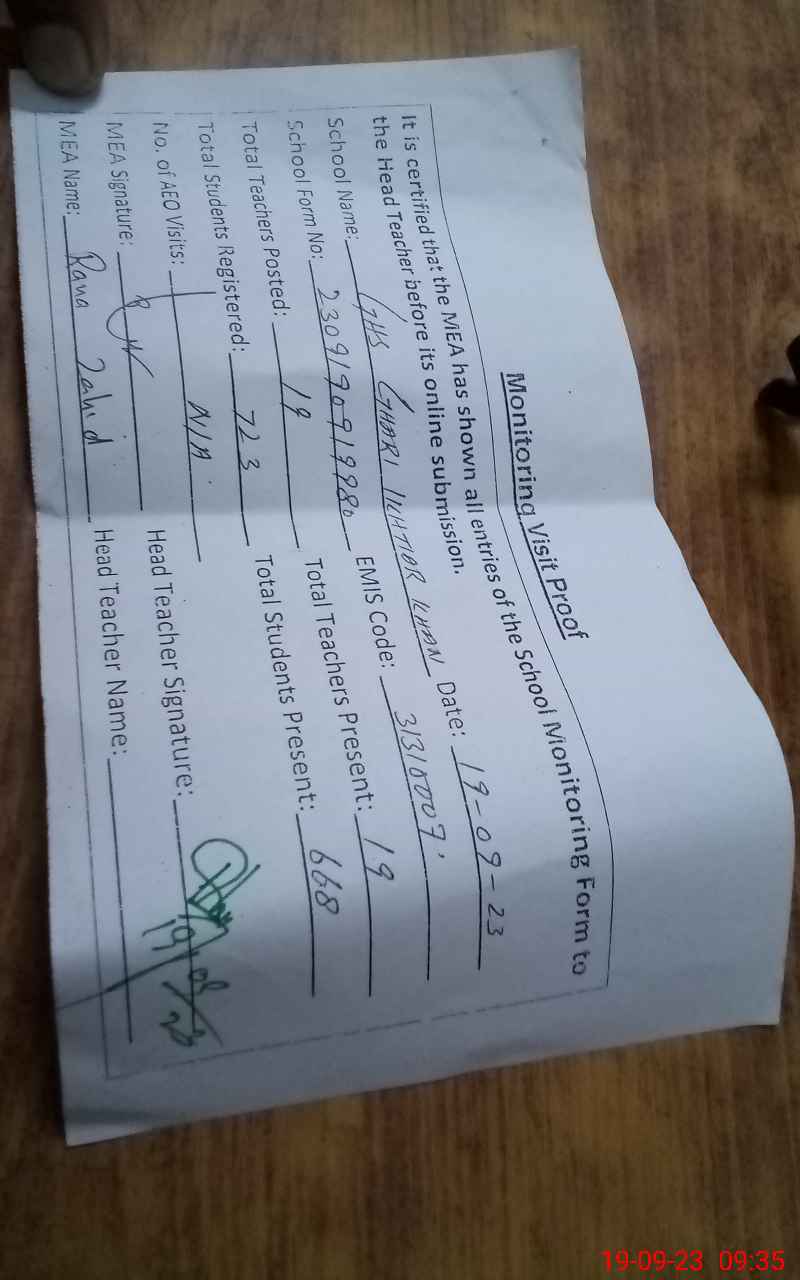 Monitoring Visit Proof
It is certified that the MEA has shown all entries of the School Monitoring Form to
the Head Teacher before its online submission.
School Name: GHS GHARI IKHTIAR KHAN Date: 19-09-23
School Form No: EMIS Code: 31310007
Total Teachers Posted: 19 Total Teachers Present: 19
Total Students Registered: 723 Total Students Present: 668
No. of AEO Visits: N/A
MEA Signature: Head Teacher Signature:
MEA Name: Rana Zahid Head Teacher Name:
19-09-23 09:35